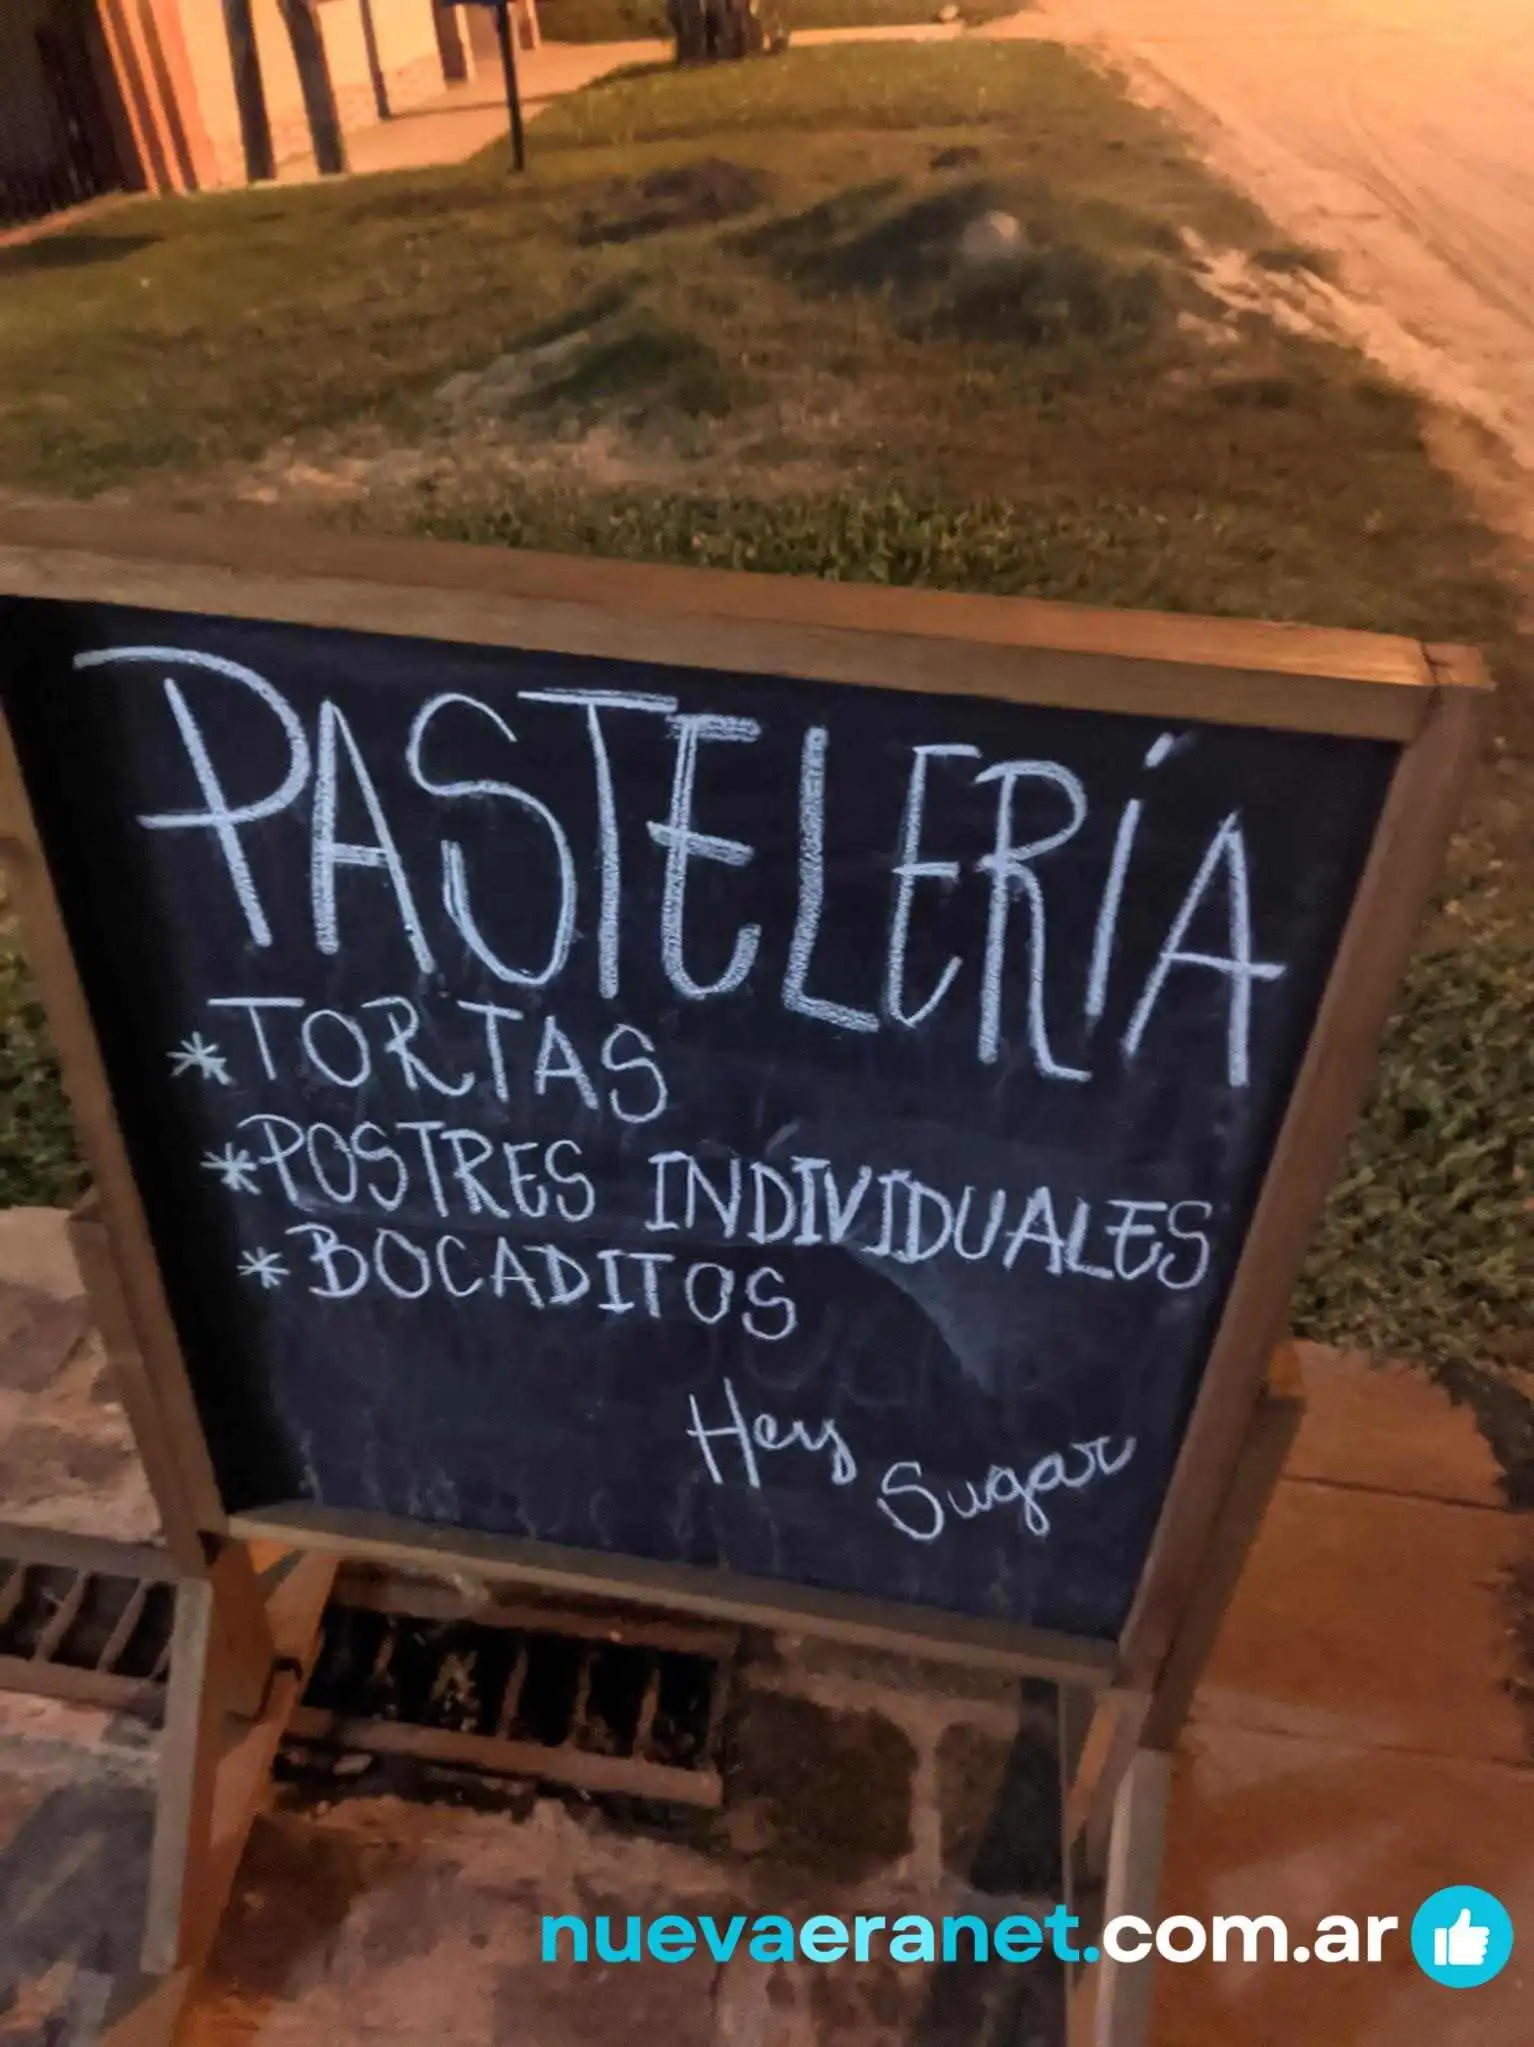 PASTELERÍA
*TORTAS
*POSTRES INDIVIDUALES
*BOCADITOS
Hey Sugar
nuevaeranet.com.ar